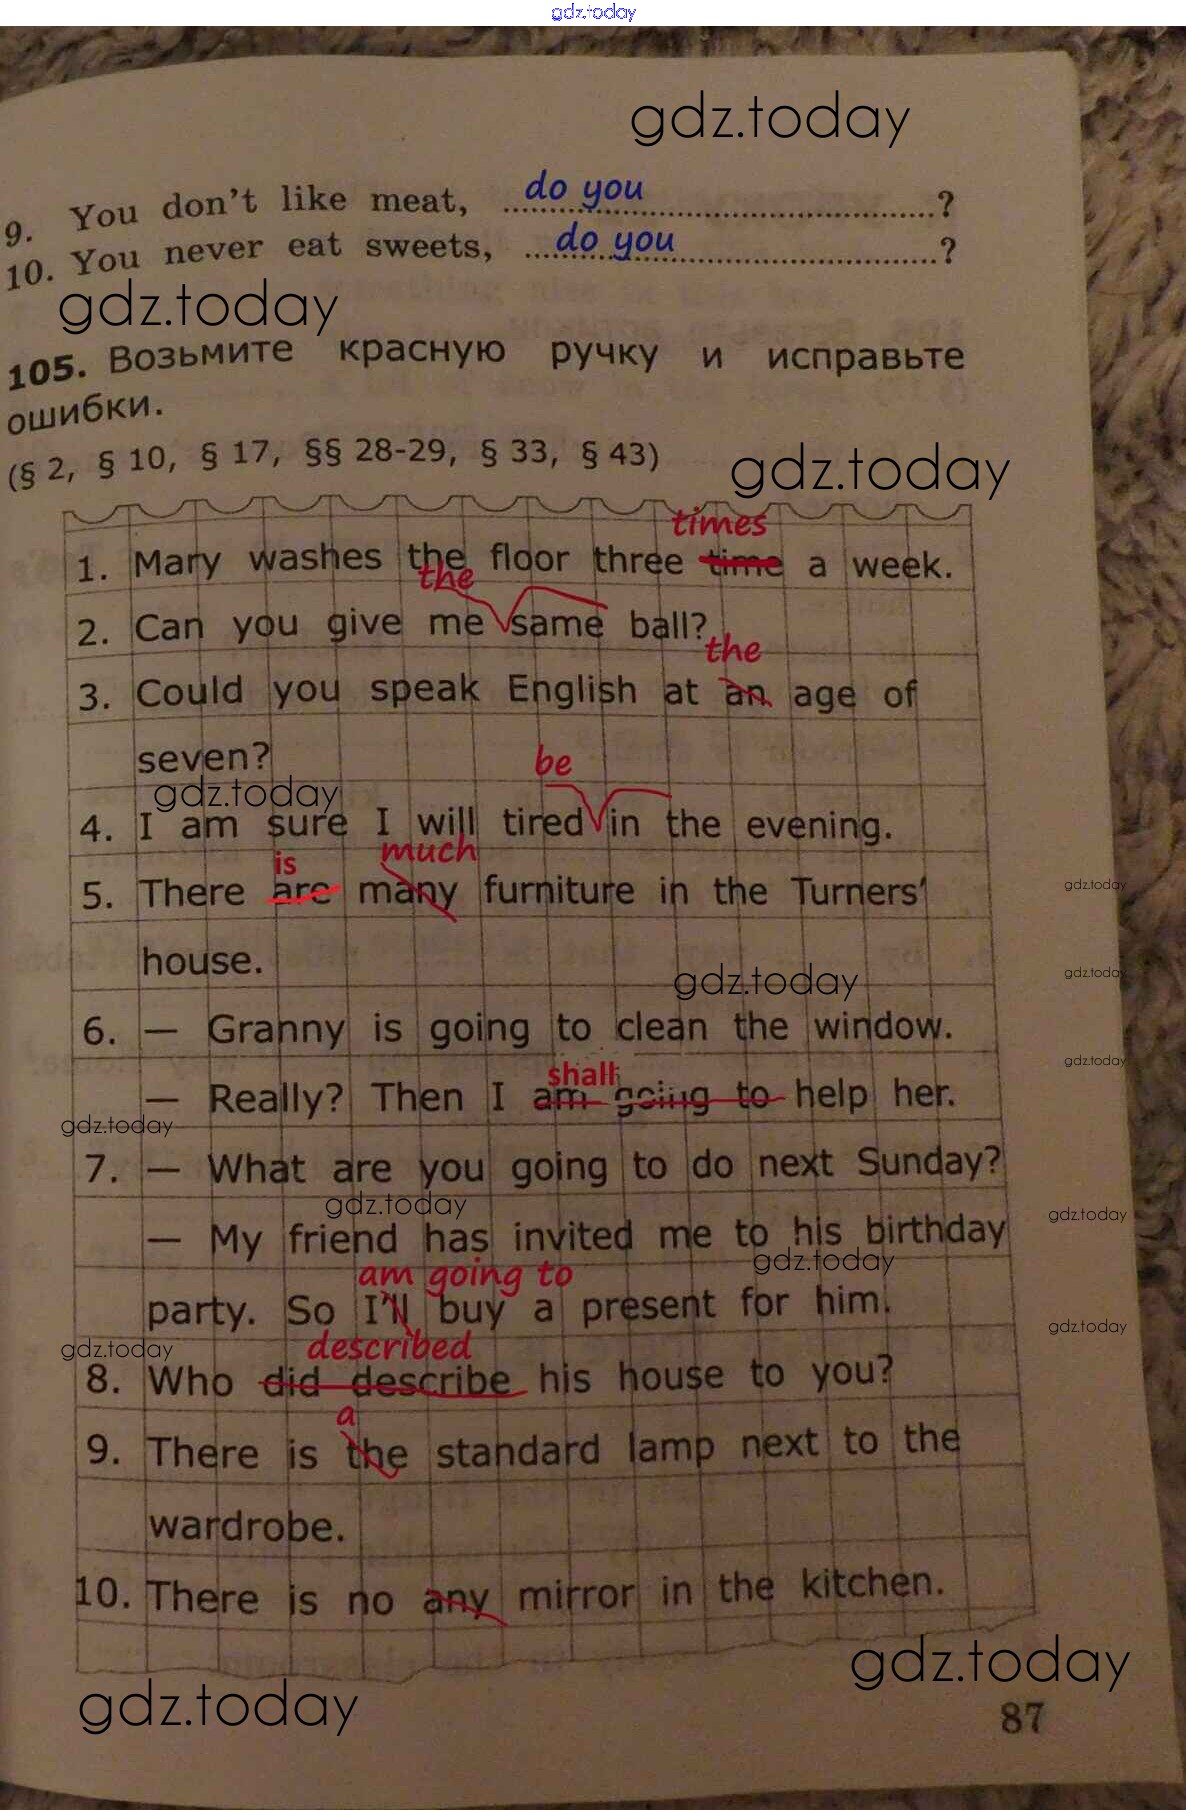 gdz.today
gdz.today
9. You don't like meat, do you ?
10. You never eat sweets, do you ?
gdz.today
105. Возьмите красную ручку и исправьте
ошибки.
(§ 2, § 10, § 17, §§ 28-29, § 33, § 43)
gdz.today
times
1. Mary washes the floor three time a week.
the
2. Can you give me same ball?
the
3. Could you speak English at an age of
seven?
be
gdz.today
4. I am sure I will tired in the evening.
is much
5. There are many furniture in the Turners'
gdz.today
house.
gdz.today
gdz.today
6. — Granny is going to clean the window.
gdz.today
shall
— Really? Then I am going to help her.
gdz.today
7. — What are you going to do next Sunday?
gdz.today
gdz.today
— My friend has invited me to his birthday
gdz.today
am going to
party. So I'll buy a present for him.
gdz.today
gdz.today
described
8. Who did describe his house to you?
a
9. There is the standard lamp next to the
wardrobe.
10. There is no any mirror in the kitchen.
gdz.today
gdz.today
87